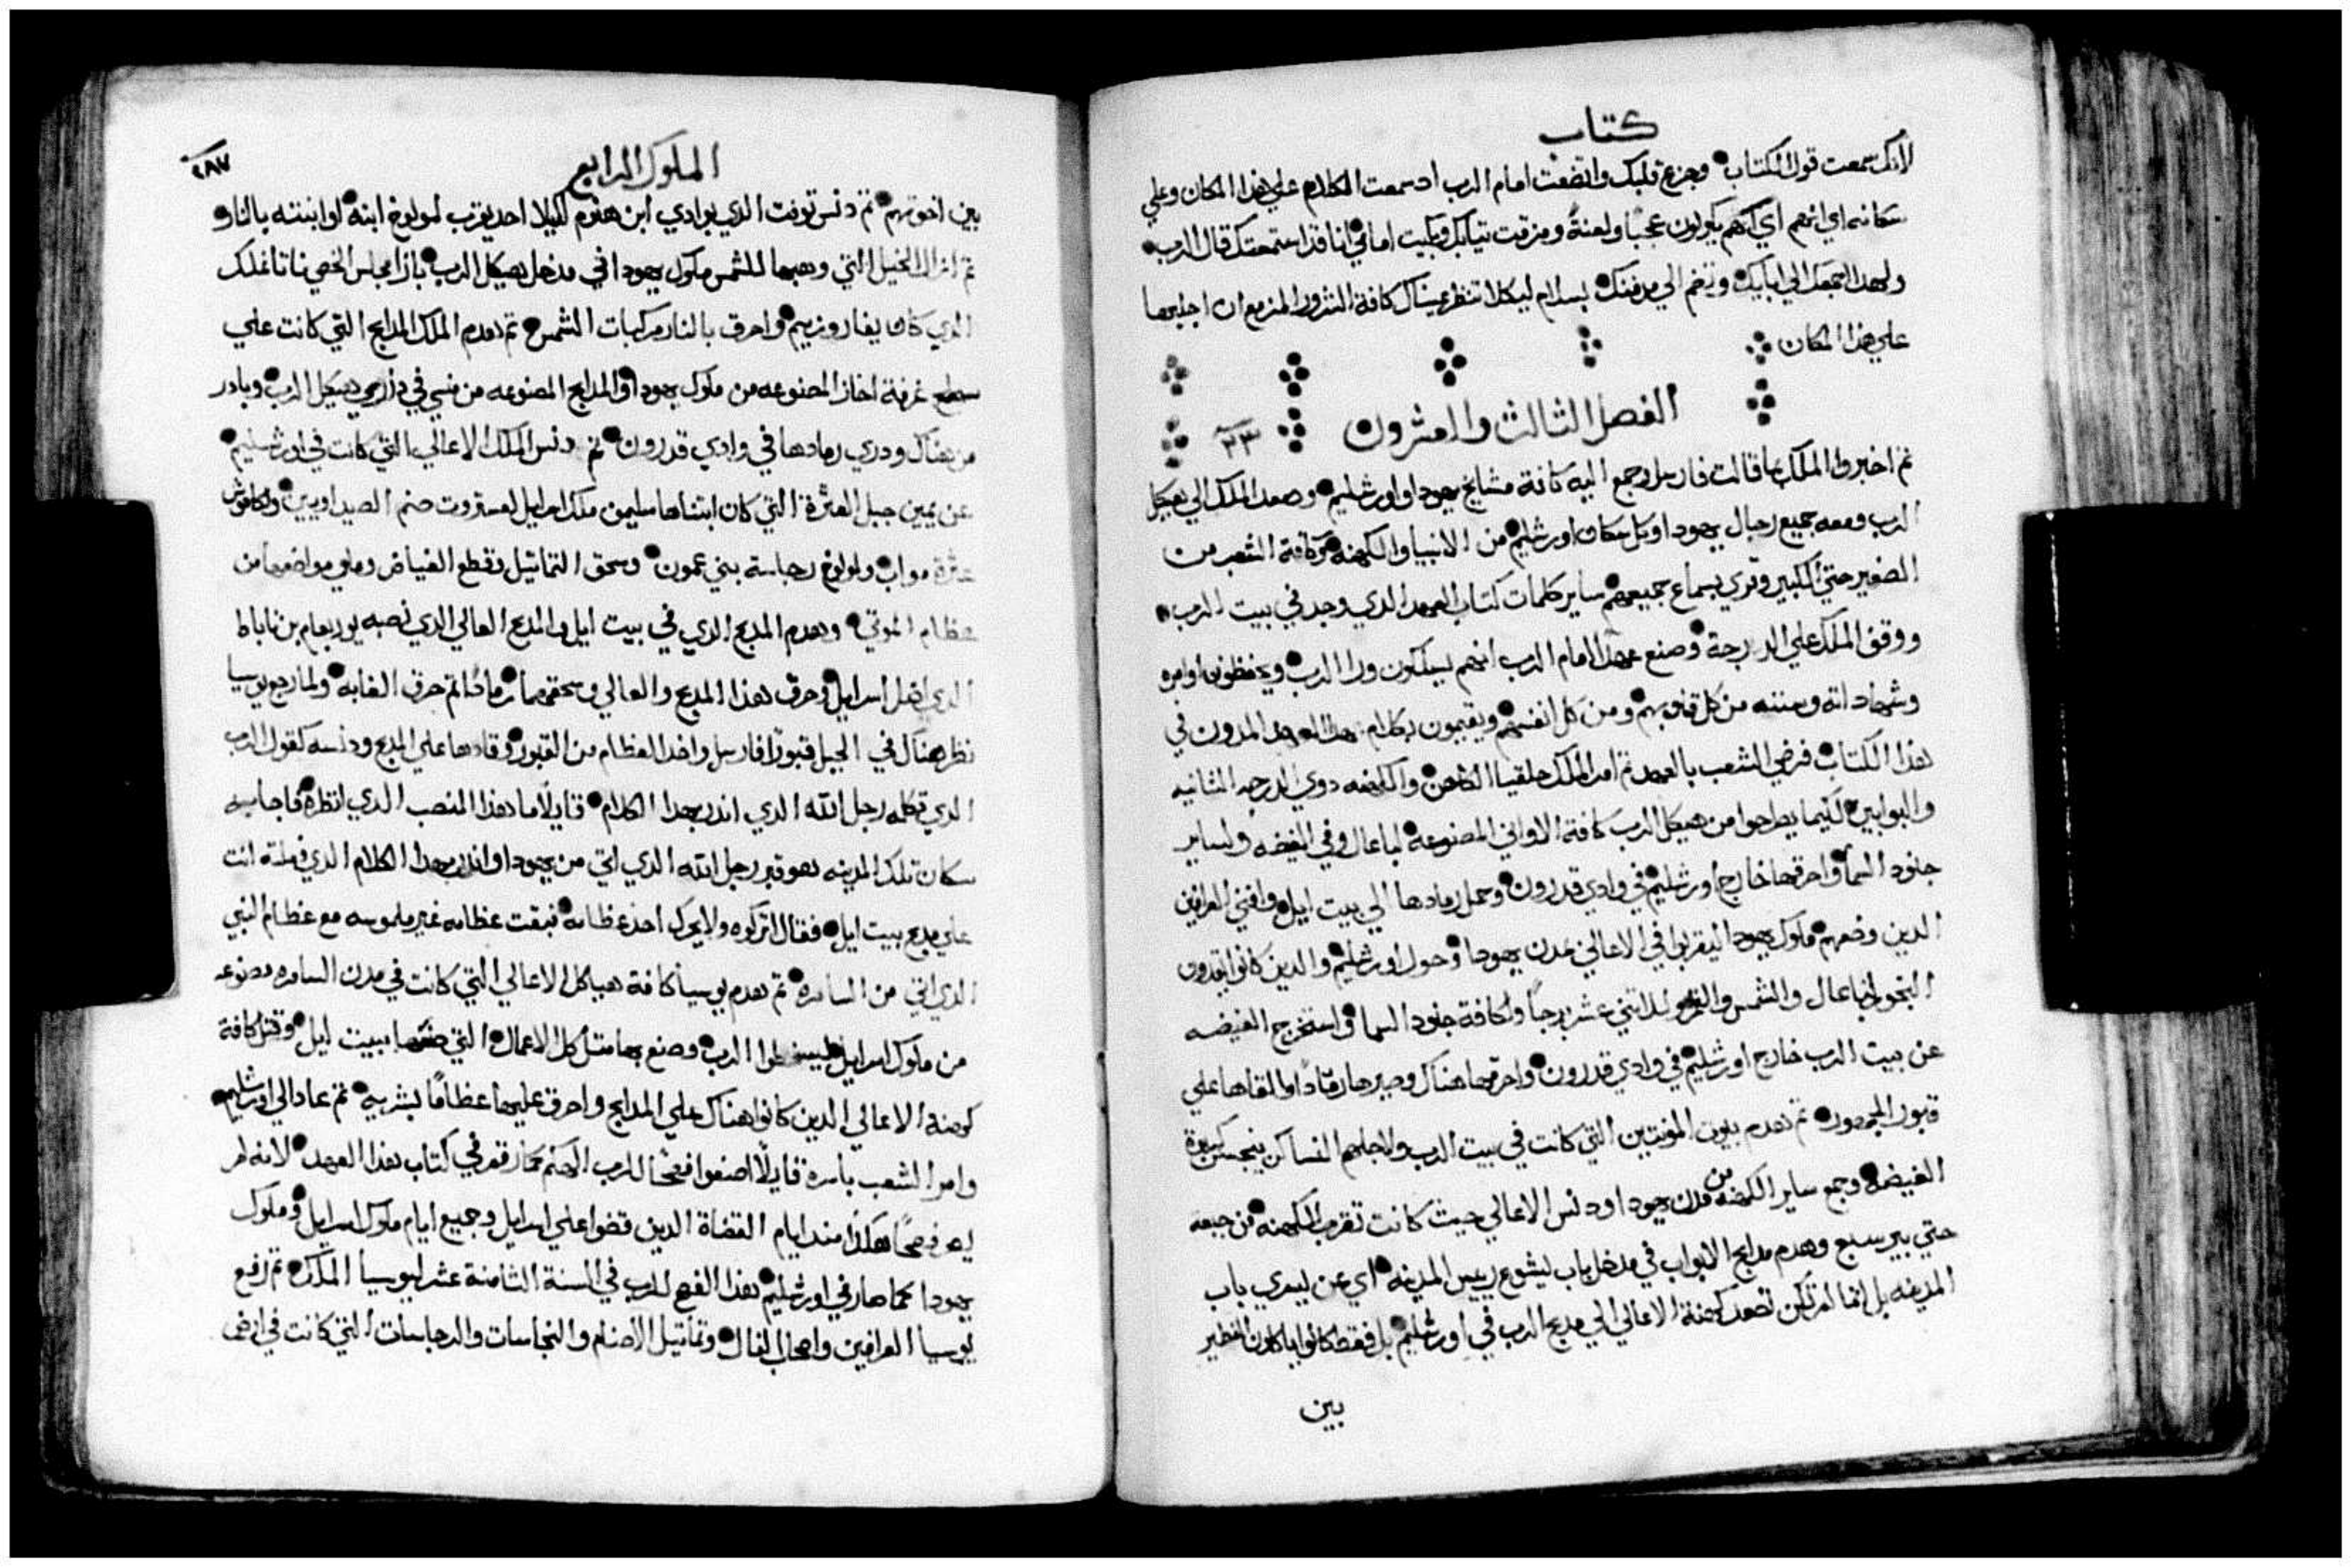 كتاب
لانك سمعت قول الكتاب وجزع قلبك واتضعت امام الرب اد سمعت الكلام علي هذا المكان وعلي
سكانه اي انهم يكونون عجبا ولعنة ومزقت تيابك وبكيت امامي انا قد استمعتك قال الرب
ولهدا اجمعك الي ابايك وتضم الي مدفنك بسلام ليكلا تنظر عيناك كافة الشرور المزمع ان اجلبها
علي هذا المكان
الفصل الثالث والعشرون ٢٣
تم اخبروا الملك بما قالت فارسل وجمع اليه كافة مشايخ يهودا واورشليم وصعد الملك الي هيكل
الرب ومعه جميع رجال يهودا وكل سكان اورشليم من الانبيا والكهنه وكافة الشعب من
الصغير حتي الكبير وقري بسماع جميعهم ساير كلمات كتاب العهد الدي وجد في بيت الرب
ووقف الملك علي الدرجة وصنع عهدا امام الرب انهم يسلكون ورا الرب ويحفظون اوامره
وشهاداته وسننه من كل قلوبهم ومن كل انفسهم ويقيمون كلام هدا العهد المدون في
هذا الكتاب فرضي الشعب بالعهد تم امر الملك حلقيا الكاهن والكهنه دوي الدرجه التانيه
والبوابين لكيما يطرحوا من هيكل الرب كافة الاواني المصنوعة لباعال وفي الغيضه ولساير
جنود السما واحرقها خارج اورشليم في وادي قدرون وحمل رمادها الي بيت ايل وافني العرافين
الدين وضعهم ملوك يهودا ليقربوا في الاعالي في مدن يهودا وحول اورشليم والدين كانوا يقدون
البخور لباعال والشمس والقمر وللاتني عشر برجا ولكافة جنود السما واستخرج الغيضه
عن بيت الرب خارج اورشليم في وادي قدرون واحرقها هناك وصيرها رمادا والقاها علي
قبور الجمهور تم هدم بيوت المونتين التي كانت في بيت الرب ولاجلهم النسا كن ينسجن كبيوة
الغيضه وجمع ساير الكهنه من مدن يهودا ودنس الاعالي حيت كانت تقرب الكهنه من جبعه
حتي بير سبع وهدم مدابح الابواب في مدخل باب ليشوع رييس المدينه اي عن ليسري باب
المدينه بل انما لم تكن تصعد كهنة الاعالي الي مدبح الرب في اورشليم بل فقط كانوا ياكلون الفطير
بين
الملوك الرابع ٢٨٧
بين اخوتهم تم دنس توفت الدي بوادي ابن هنوم لكيلا احد يقرب لمولوخ ابنه او ابنته بالنار
تم ازال الخيل التي وهبها للشمس ملوك يهودا في مدخل هيكل الرب بازا مجلس الخصي ناتانملك
الدي كان بفاروزيم واحرق بالنار مركبات الشمس تم هدم الملك المدابح التي كانت علي
سطح غرفة اخاز المصنوعه من ملوك يهودا والمدابح المصنوعه من منسي في داري هيكل الرب وبادر
من هناك ودري رمادها في وادي قدرون تم دنس الملك الاعالي التي كانت في اورشليم
عن يمين جبل العترة التي كان ابتناها سليمن ملك اسرايل لعستروت صنم الصيداويين ولكاموش
عترة مواب ولمولوخ رجاسة بني عمون وسحق التماتيل وقطع الغياض وملي مواضعها من
عظام الموتي وهدم المدبح الدي في بيت ايل والمدبح العالي الدي نصبه يوربعام بن ناباط
الدي اضل اسرايل وحرق هذا المدبح والعالي وسحقهما رمادا تم حرق الغابه ولما رجع يوسيا
نظر هناك في الجبل قبورا فارسل واخد العظام من القبور وقادها علي المدبح ودنسه كقول الرب
الدي تكلمه رجل الله الدي اندر بهدا الكلام قايلا ما هذا النصب الدي انظره فاجابه
سكان تلك المدينه هو قبر رجل الله الدي اتي من يهودا واندر بهدا الكلام الدي فعلته انت
علي مدبح بيت ايل فقال اتركوه ولا يحرك احد عظامه فبقت عظامه غير ملموسه مع عظام النبي
الدي اتي من السامره تم هدم يوسيا كافة هياكل الاعالي التي كانت في مدن السامره مصنوعه
من ملوك اسرايل ليسخطوا الرب وصنع بها متل كل الاعمال التي صنعها ببيت ايل وقتل كافة
كهنة الاعالي الدين كانوا هناك علي المدابح واحرق عليها عظاما بشريه تم عاد الي اورشليم
وامر الشعب باسره قايلا اصنعوا فصحا للرب الهكم كما رقم في كتاب هذا العهد لانه لم
يصر فصحا هكدا مند ايام القضاة الدين قضوا علي اسرايل وجميع ايام ملوك اسرايل وملوك
يهودا كما صار في اورشليم هذا الفصح للرب في السنة التامنة عشر ليوسيا الملك تم رفع
يوسيا العرافين واصحاب الفال وتماتيل الاصنام والنجاسات والرجاسات التي كانت في ارض